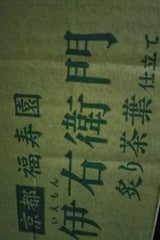 京都 福寿園
いえもん
伊右衛門
炙り茶葉仕立て